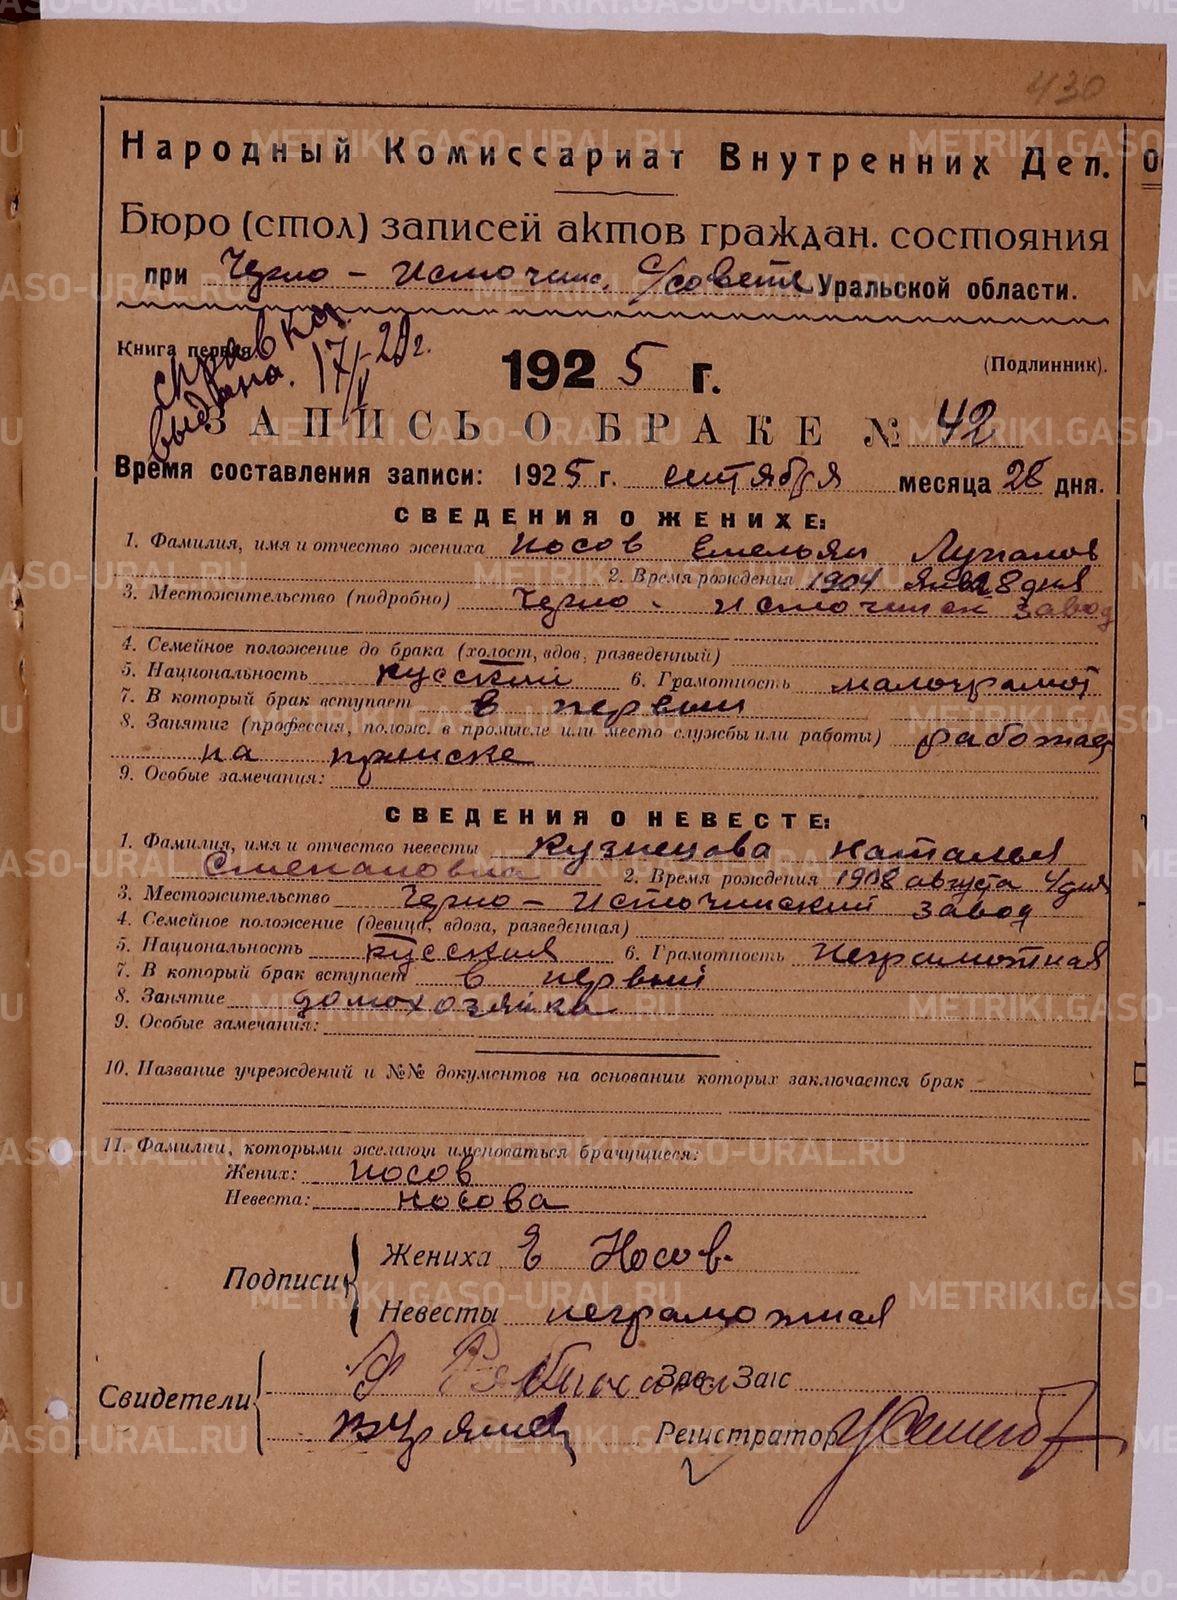 430
Народный Комиссариат Внутренних Дел.
Бюро (стол) записей актов граждан. состояния
при Черно-источин. с/совете Уральской области.
Книга первая.
справка
выдана. 17/V-29г.
1925 г.
(Подлинник).
ЗАПИСЬ О БРАКЕ № 42
Время составления записи: 1925 г. сентября месяца 28 дня.
СВЕДЕНИЯ О ЖЕНИХЕ:
1. Фамилия, имя и отчество жениха Носов Емельян
2. Время рождения 1904 янв 8 дня
3. Местожительство (подробно) Черно-источинск завод
4. Семейное положение до брака (холост, вдов, разведенный)
5. Национальность русский 6. Грамотность малограмот
7. В который брак вступает в первый
8. Занятие (профессия, полож. в промысле или место службы или работы) работает
на прииске
9. Особые замечания:
СВЕДЕНИЯ О НЕВЕСТЕ:
1. Фамилия, имя и отчество невесты Кузнецова наталья
Степановна 2. Время рождения 1908 августа 4 дня
3. Местожительство Черно-источинский завод
4. Семейное положение (девица, вдова, разведенная)
5. Национальность русская 6. Грамотность неграмотная
7. В который брак вступает в первый
8. Занятие домохозяйка
9. Особые замечания:
10. Название учреждений и №№ документов на основании которых заключается брак
11. Фамилии, которыми желают именоваться брачущиеся:
Жених: Носов
Невеста: носова
Подписи
Жениха Е Носов.
Невесты неграмотная
Свидетели
Зав. Загс
Регистратор
METRIKI.GASO-URAL.RU